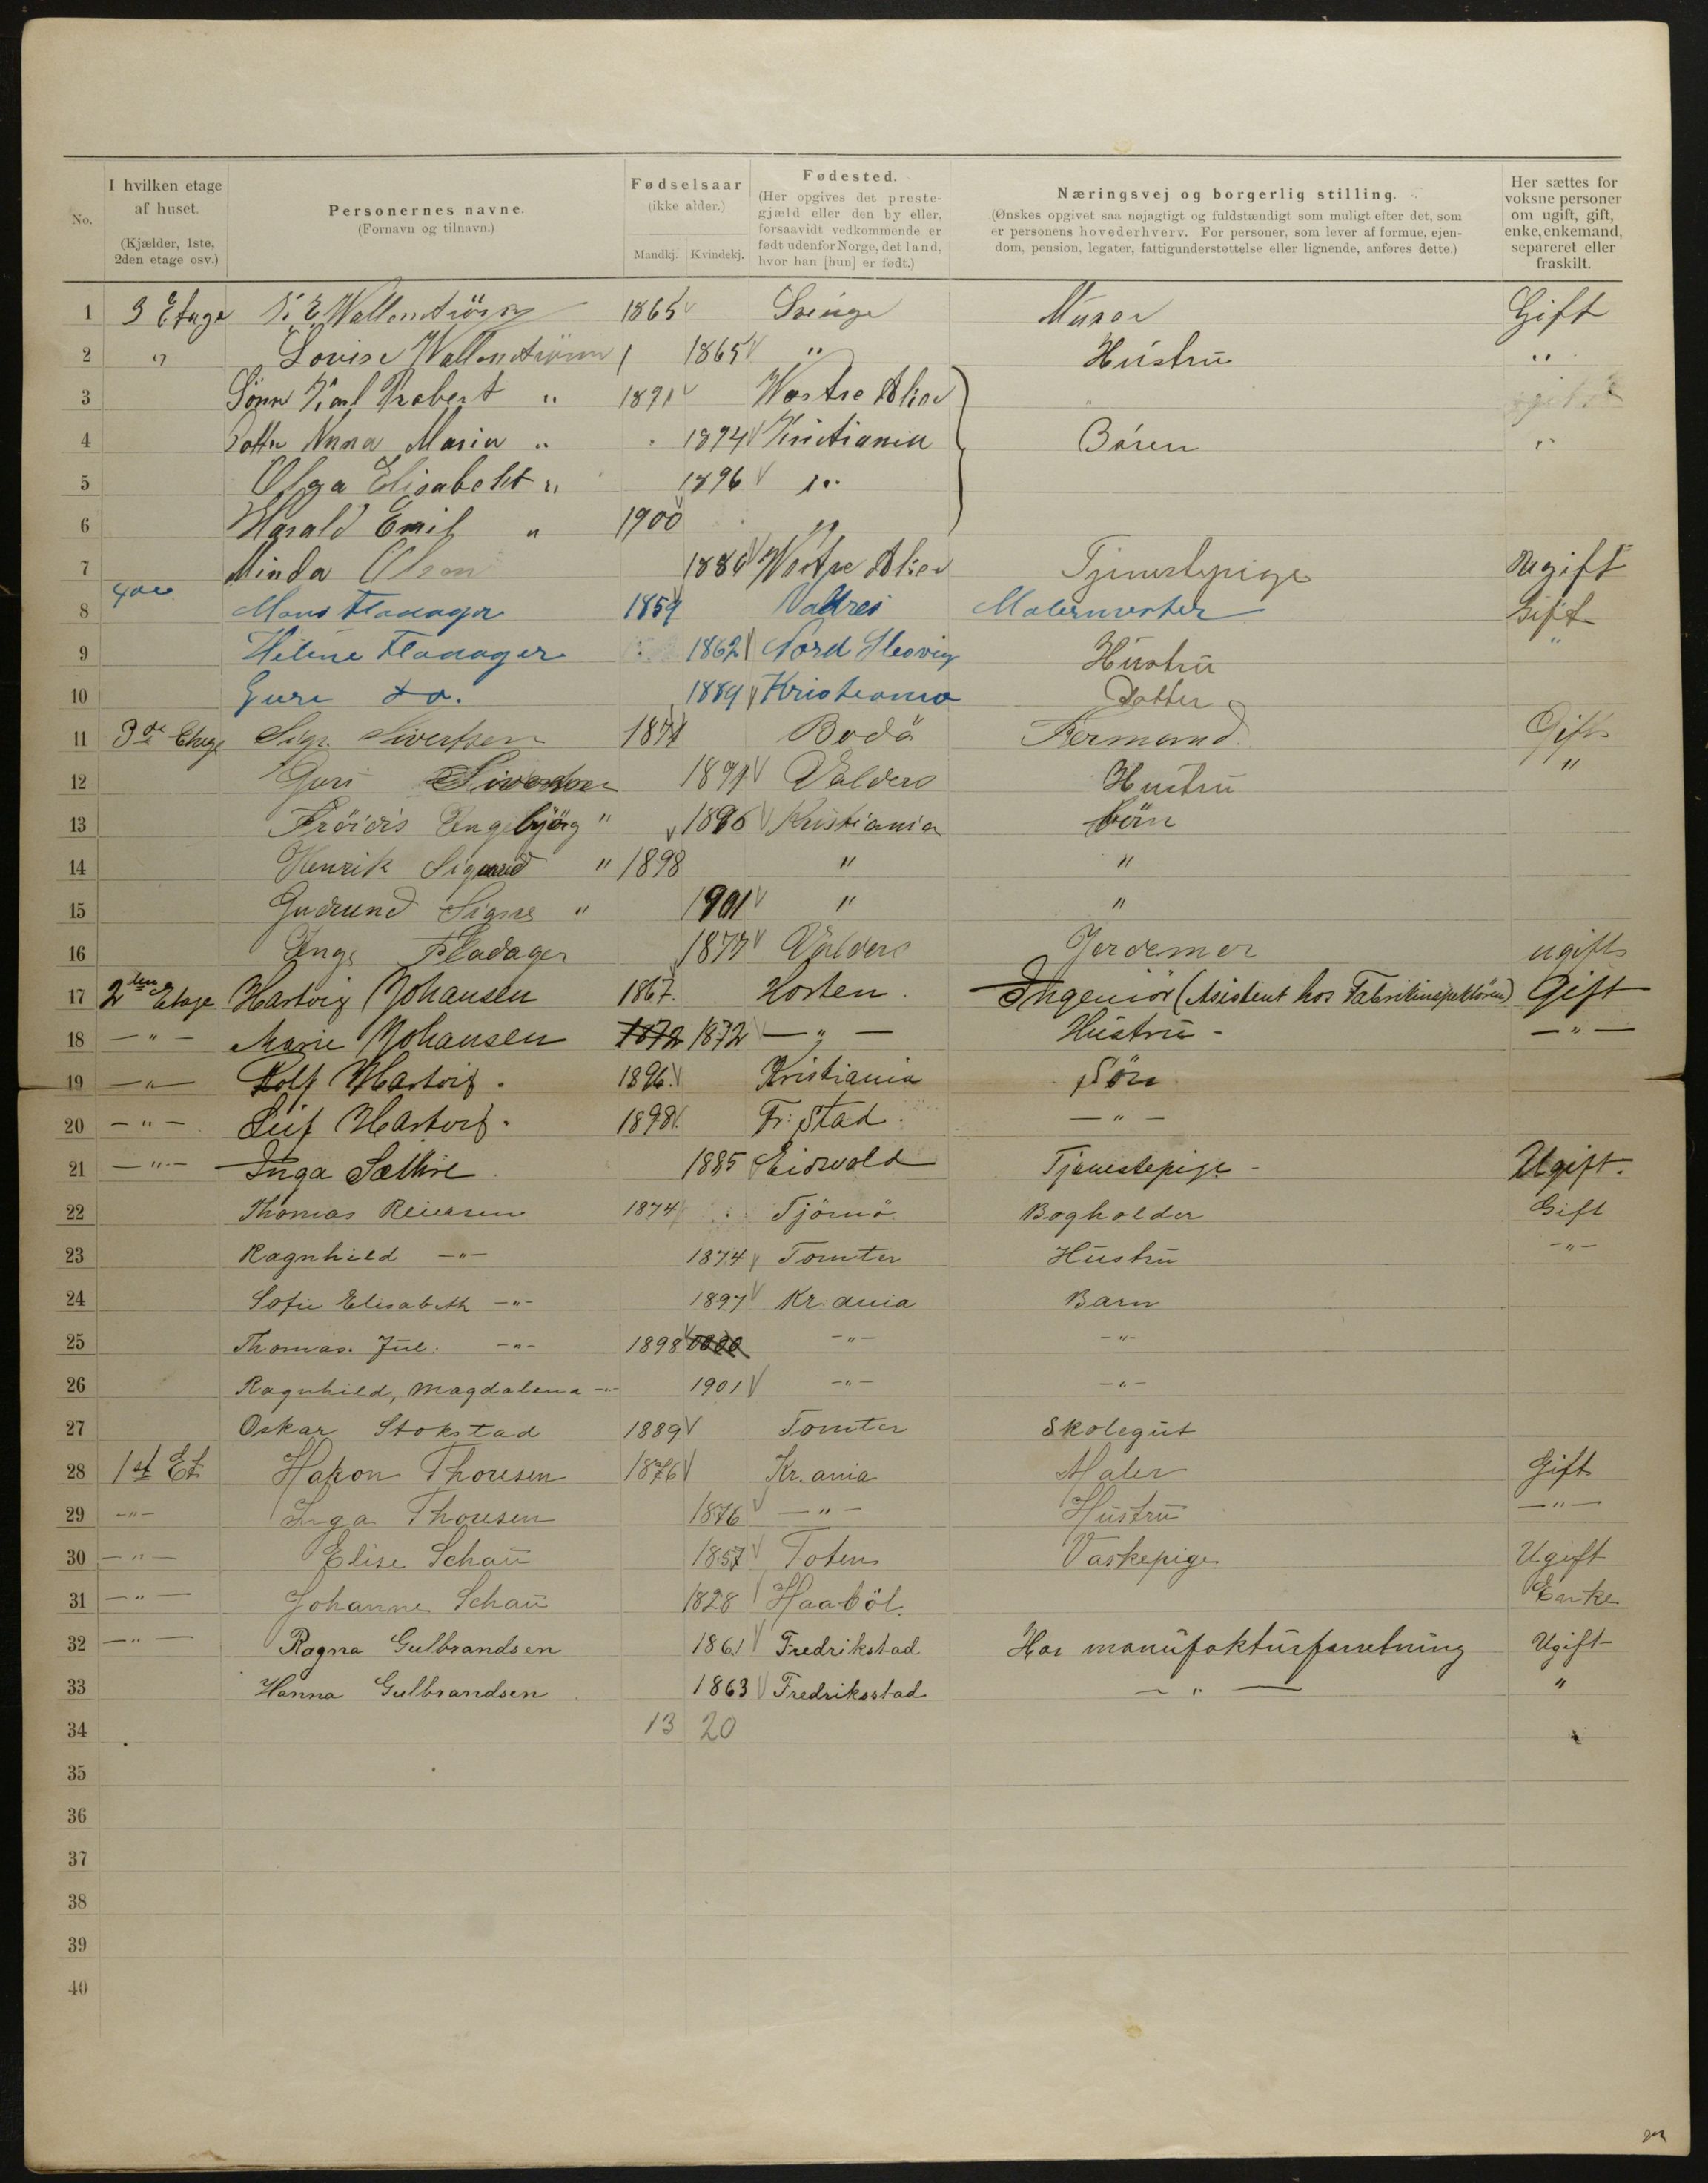 No.
I hvilken etage af huset.
(Kjælder, 1ste, 2den etage osv.)
Personernes navne.
(Fornavn og tilnavn.)
Fødselsaar
(ikke alder.)
Mandkj. Kvindekj.
Fødested.
(Her opgives det prestegjæld eller den by eller, forsaavidt vedkommende er født udenfor Norge, det land, hvor han [hun] er født.)
Næringsvej og borgerlig stilling.
(Ønskes opgivet saa nøjagtigt og fuldstændigt som muligt efter det, som er personens hovederhverv. For personer, som lever af formue, ejendom, pension, legater, fattigunderstøttelse eller lignende, anføres dette.)
Her sættes for voksne personer om ugift, gift, enke, enkemand, separeret eller fraskilt.
1 3 Etage K E Wallenström 1865 Sverige Murer Gift
2 " Lovise Wallenström 1865 " Hustru "
3 Sønn Karl Robert " 1891 Vestre Aker
4 Dotter Anna Maria " 1894 Kristiania Bören "
5 Olga Elisabeht " 1896 "
6 Harald Emil " 1900 "
7 Minda Olsen 1886 Vestre Aker Tjenestepige Ugift
8 4de Mons Fladager 1859 Valdres Malermester Gift
9 Helene Fladager 1862 Nord Slesvig Hustru "
10 Guri do. 1889 Kristiania Datter
11 3de Etage Sigv. Sivertsen 1871 Bodö Formand. Gift
12 Guri Sivertsen 1871 Valders Hustru "
13 Fröidis Engebjörg " 1896 Kristiania börn
14 Henrik Sigurd " 1898 " "
15 Gudrund Signe " 1901 " "
16 Inga Fladager 1877 Valders Jordemor ugift
17 2den Etage Hartvig Johansen 1867. Horten. Ingeniör (Asistent hos Fabrikinspektören) Gift
18 - " - Marie Johansen 1872 1872 - " - Hustru - - " -
19 - " - Rolf Hartvig. 1896. Kristiania Sön
20 - " - Leif Hartvig. 1898. Fr: Stad. - " -
21 - " - Inga Sæthre. 1885 Eidsvold Tjenestepige - Ugift.
22 Thomas Reiersen 1874 Tjömö Bogholder Gift
23 Ragnhild - " - 1874 Tomter Hustru - " -
24 Sofie Elisabeth - " - 1897 Kr: ania Barn
25 Thomas. Jul. - " - 1898 - " - - " -
26 Ragnhild, Magdalena - " - 1901 - " - - " -
27 Oskar Stokstad 1889 Tomter Skolegut
28 1st Et Hakon Thoresen 1876 Kr. ania Maler Gift
29 - " - Inga Thoresen 1876 - " - Hustru - " -
30 - " - Elise Schau 1857 Toten Vaskepige Ugift
31 - " - Johanne Schau 1828 Haaböl. Enke
32 - " - Ragna Gulbrandsen 1861 Fredrikstad Har manufakturforretning Ugift
33 Hanna Gulbrandsen 1863 Fredriksstad - " - "
34 13 20
35
36
37
38
39
40